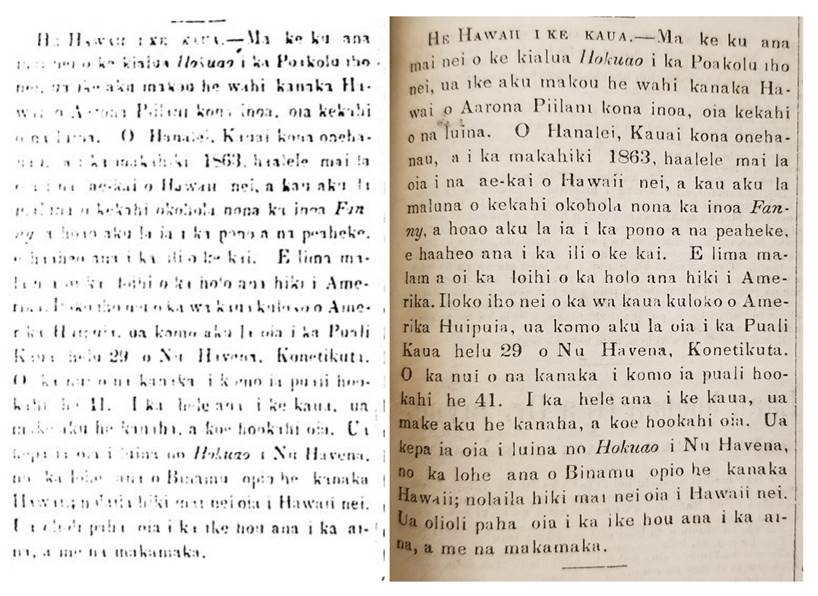 HE HAWAII I KE KAUA.—Ma ke ku ana
mai nei o ke kialua Hokuao i ka Poakolu iho
nei, ua ike aku makou he wahi kanaka Ha-
wai o Aarona Piilani kona inoa, oia kekahi
o na luina. O Hanalei, Kauai kona oneha-
a i ka makahiki 1863, haalele mai la
ae-kai o Hawaii nei, a kau aku la
o kekahi okohola nona ka inoa Fan-
ny, a hoao aku la ia i ka pono a na peaheke,
e haaheo ana i ka ili o ke kai. E lima ma-
loihi o ka holo ana hiki i Ame-
rika. Iloko iho nei o ka wa kaua kuloko o Ame-
rika Huipuia, ua komo aku la oia i ka Puali
Kaua helu 29 o Nu Havena, Konetikuta.
O ka nui o na kanaka i komo ia puali hoo-
kahi he 41. I ka hele ana i ke kaua, ua
make aku he kanaha, a koe hookahi oia. Ua
kepa ia oia i luina no Hokuao i Nu Havena,
no ka lohe ana o Binamu opio he kanaka
Hawaii; nolaila hiki mai nei oia i Hawaii nei.
Ua olioli paha oia i ka ike hou ana i ka ai-
na, a me na makamaka.
HE HAWAII I KE KAUA.—Ma ke ku ana
mai nei o ke kialua Hokuao i ka Poakolu iho
nei, ua ike aku makou he wahi kanaka Ha-
wai o Aarona Piilani kona inoa, oia kekahi
o na luina. O Hanalei, Kauai kona oneha-
nau, a i ka makahiki 1863, haalele mai la
oia i na ae-kai o Hawaii nei, a kau aku la
maluna o kekahi okohola nona ka inoa Fan-
ny, a hoao aku la ia i ka pono a na peaheke,
e haaheo ana i ka ili o ke kai. E lima ma-
lam a oi ka loihi o ka holo ana hiki i Ame-
rika. Iloko iho nei o ka wa kaua kuloko o Ame-
rika Huipuia, ua komo aku la oia i ka Puali
Kaua helu 29 o Nu Havena, Konetikuta.
O ka nui o na kanaka i komo ia puali hoo-
kahi he 41. I ka hele ana i ke kaua, ua
make aku he kanaha, a koe hookahi oia. Ua
kepa ia oia i luina no Hokuao i Nu Havena,
no ka lohe ana o Binamu opio he kanaka
Hawaii; nolaila hiki mai nei oia i Hawaii nei.
Ua olioli paha oia i ka ike hou ana i ka ai-
na, a me na makamaka.